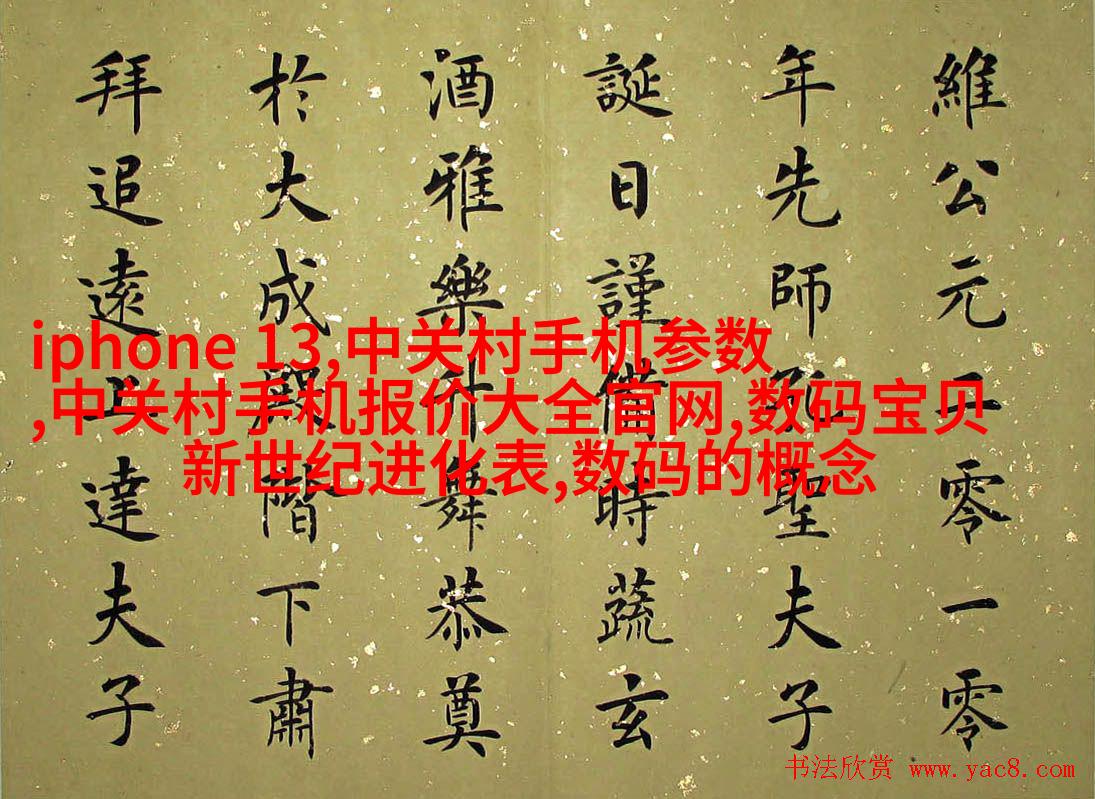 維公元二零一零
年先師孔聖夫子
誕日謹備時蔬玄
酒雅樂升舞恭奠
於大成殿階下肅
拜追遠上達夫子
iphone 13,中关村手机参数
,中关村手机报价大全官网,数码宝贝
新世纪进化表,数码的概念
书法欣赏 www.yac8.com